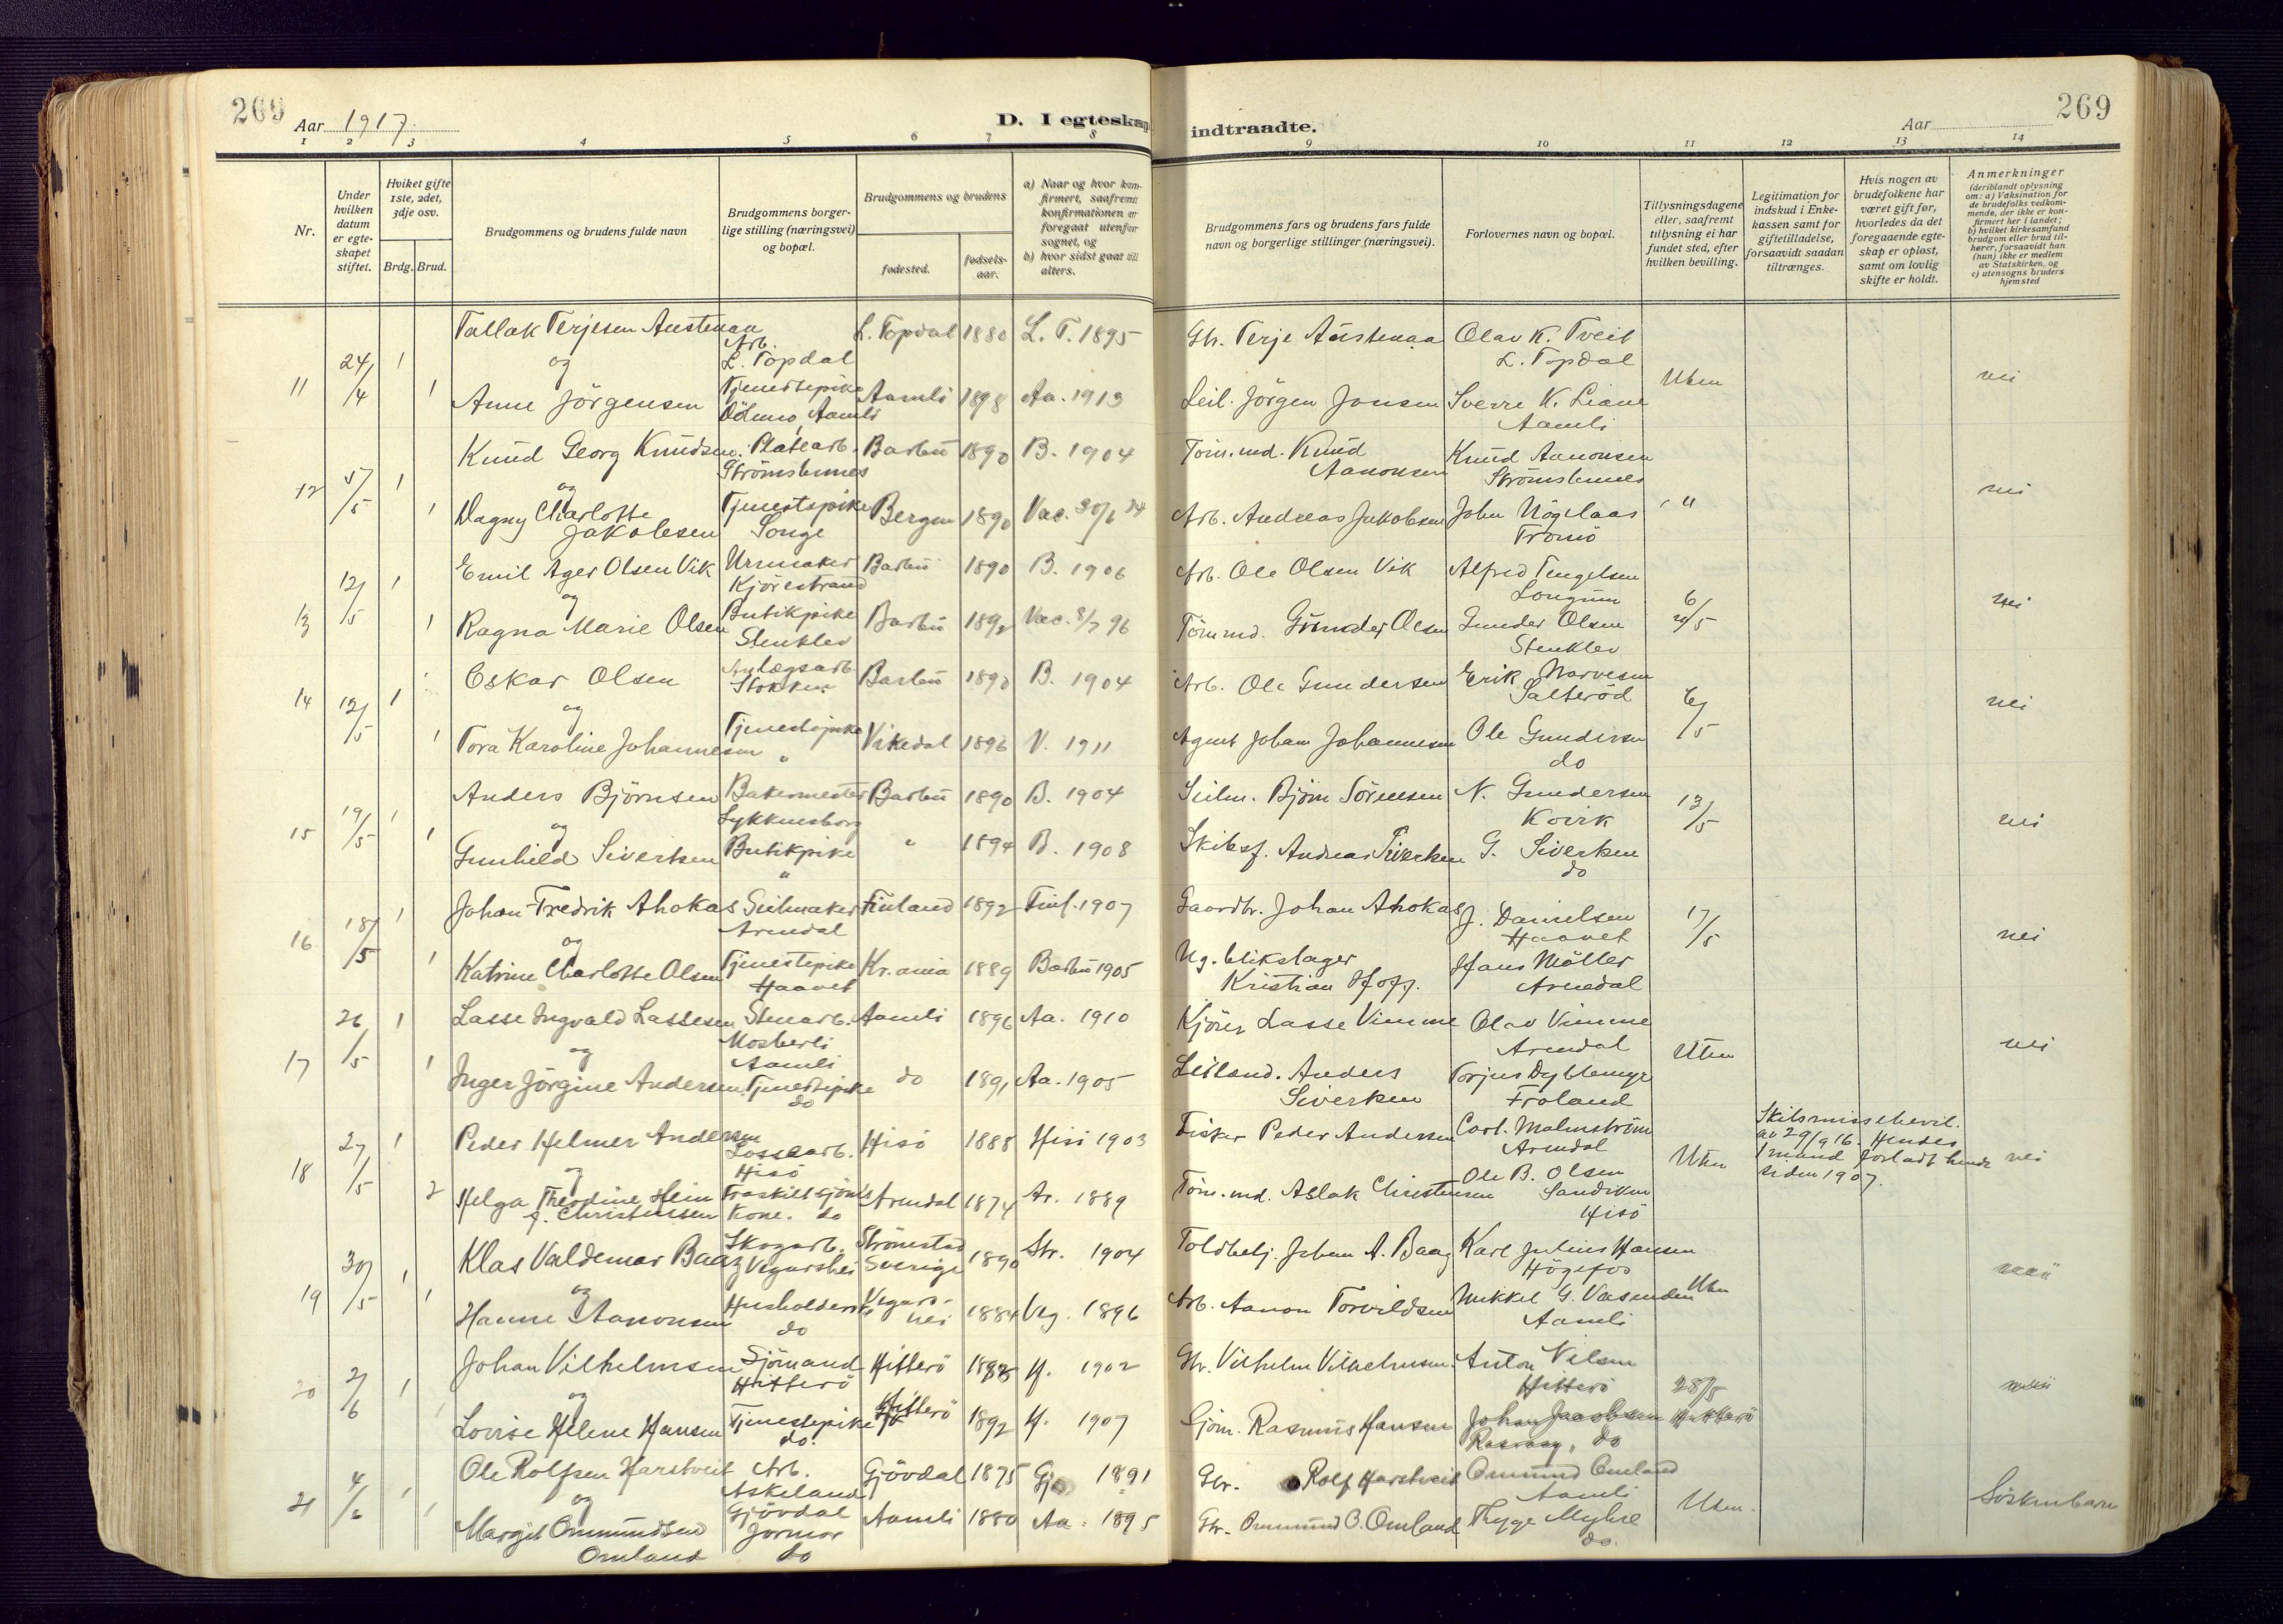 269
Aar 1917.
D. I egteskap
indtraadte.
Aar
269
1 2 3 4 5 6 7 8 9 10 11 12 13 14
Nr.
Under hvilken datum er egteskapet stiftet.
Hviket gifte 1ste, 2det, 3dje osv.
Brdg. Brud.
Brudgommens og brudens fulde navn
Brudgommens borgerlige stilling (næringsvei) og bopæl.
Brudgommens og brudens
fødested.
fødselsaar.
a) Naar og hvor konfirmert, saafremt konfirmationen er foregaat utenfor sognet, og
b) hvor sidst gaat til alters.
Brudgommens fars og brudens fars fulde navn og borgerlige stillinger (næringsvei).
Forlovernes navn og bopæl.
Tillysningsdagene eller, saafremt tillysning ei har fundet sted, efter hvilken bevilling.
Legitimation for indskud i Enkekassen samt for giftetilladelse, forsaavidt saadan tiltrænges.
Hvis nogen av brudefolkene har været gift før, hvorledes da det foregaaende egteskap er opløst, samt om lovlig skifte er holdt.
Anmerkninger
(deriblandt oplysning om: a) Vaksination for de brudefolks vedkommende, der ikke er konfirmert her i landet; b) hvilket kirkesamfund brudgom eller brud tilhører, forsaavidt han (hun) ikke er medlem av Statskirken, og c) utensogns bruders hjemsted
11 24/4 1 Tallak Terjesen Austenaa Arb. L. Topdal L. Topdal 1880 L. T. 1895 Gbr. Terje Austenaa Olav K. Tveit L. Topdal Uten nei
og
1 Anne Jörgensen Tjenestepike Aamli Aamli 1898 Aa. 1913 Leil. Jörgen Jonsen Sverre K. Liane Aamli
12 5/5 1 Knud Georg Knudsen Platearb. Strömsbunes Barbu 1890 B. 1904 Töm.md. Knud Aanonsen Knud Aanonsen Strömsbunes " nei
og
1 Dagny Charlotte Jakobsen Tjenestepike Songe Bergen 1890 Vac. Arb. Andreas Jakobsen John Tromö
13 12/5 1 Emil Ager Olsen Vik Urmaker Kjörestrand Barbu 1890 B. 1906 Arb. Ole Olsen Vik Alfred Tengelsen Longum 6/5 nei
og
1 Ragna Marie Olsen Butikpike Stenklev Barbu 1892 Vac. 8/7 96 Töm.md. Gunder Olsen Gunder Olsen Stenklev
14 12/5 1 Oskar Olsen Anlægsarb. Stokken Barbu 1890 B. 1904 Arb. Ole Gundersen Erik Narvesen Salteröd 6/5 nei
og
1 Tora Karoline Johannesen Tjenestepike " Vikedal 1896 V. 1911 Agent Johan Johannesen Ole Gundersen do
15 19/5 1 Anders Björnsen Bakermester Lykkensborg Barbu 1890 B. 1904 Seilm. Björn Sörensen N. Gundersen Kvirk 13/5 nei
og
1 Gunhild Sivertsen Butikpike " " 1894 B. 1908 Skibsf. Andreas Sivertsen G. Sivertsen do
16 18/5 1 Johan Fredrik Ahokas Seilmaker Arendal Finland 1892 Finl. 1907 Gaardbr. Johan Ahokas J. Danielsen Haavet 17/5 nei
og
1 Katrine Charlotte Olsen Tjenestepike Haavet Kr.ania 1889 Barbu 1905 Ug. blikslager Kristian Hoff. Hans Möller Arendal
17 26/5 1 Lasse Ingvald Lassesen Stenarb. Mosberli Aamli Aamli 1896 Aa. 1910 Kjörer Lasse Vimme Olav Vimme Arendal Uten nei
og
1 Inger Jörgine Andersen Tjenestepike do do 1891 Aa. 1905 Leiland. Anders Sivertsen Torjus Dyblemyr Froland
18 27/5 1 Peder Helmer Andersen Lossearb. Hisö Hisö 1888 Hisö 1903 Fisker Peder Andersen Carl Malmström Arendal Uten Skilsmissebevil. av 29/9 16. Hendes 1 mand forladt hende siden 1907. nei
og
2 Helga Theodine Hein f. Christensen Fraskilt sjöm's kone. do Arendal 1874 Ar. 1889 Töm.md. Aslak Christensen Ole B. Olsen Sandiken Hisö
19 30/5 1 Klas Valdemar Baaz Skogarb. Vegarshei Strömstad Sverige 1890 Str. 1904 Toldbetj. Johan A. Baaz Karl Julius Hansen Högefos Uten nei
og
1 Hanne Aanonsen Husholderske do Vegarshei 1884 Veg. 1896 Arb. Aanon Torvildsen Mikkel G. Vasenden Aamli
20 2/6 1 Johan Vilhelmsen Sjömand Hitterö Hitterö 1888 H. 1902 Gbr. Vilhelm Vilhelmsen Anton Nilsen Hitterö 28/5 Hitterö nei
og
1 Lovise Helene Hansen Tjenestepike do. Hitterö 1892 H. 1907 Sjöm. Rasmus Hansen Johan Jacobsen Rasvaag, do
21 4/6 1 Ole Rolfsen Harstveit Arb. Askeland Gjövdal Gjövdal 1875 Gj. 1891 Gbr. Rolf Harstveit Ommund Omland Aamli Uten. Söskenbarn
og
1 Margit Ommundsen Omland Jormor do Aamli 1880 Aa. 1895 Gbr. Ommund O. Omland Thygge Myhre do.